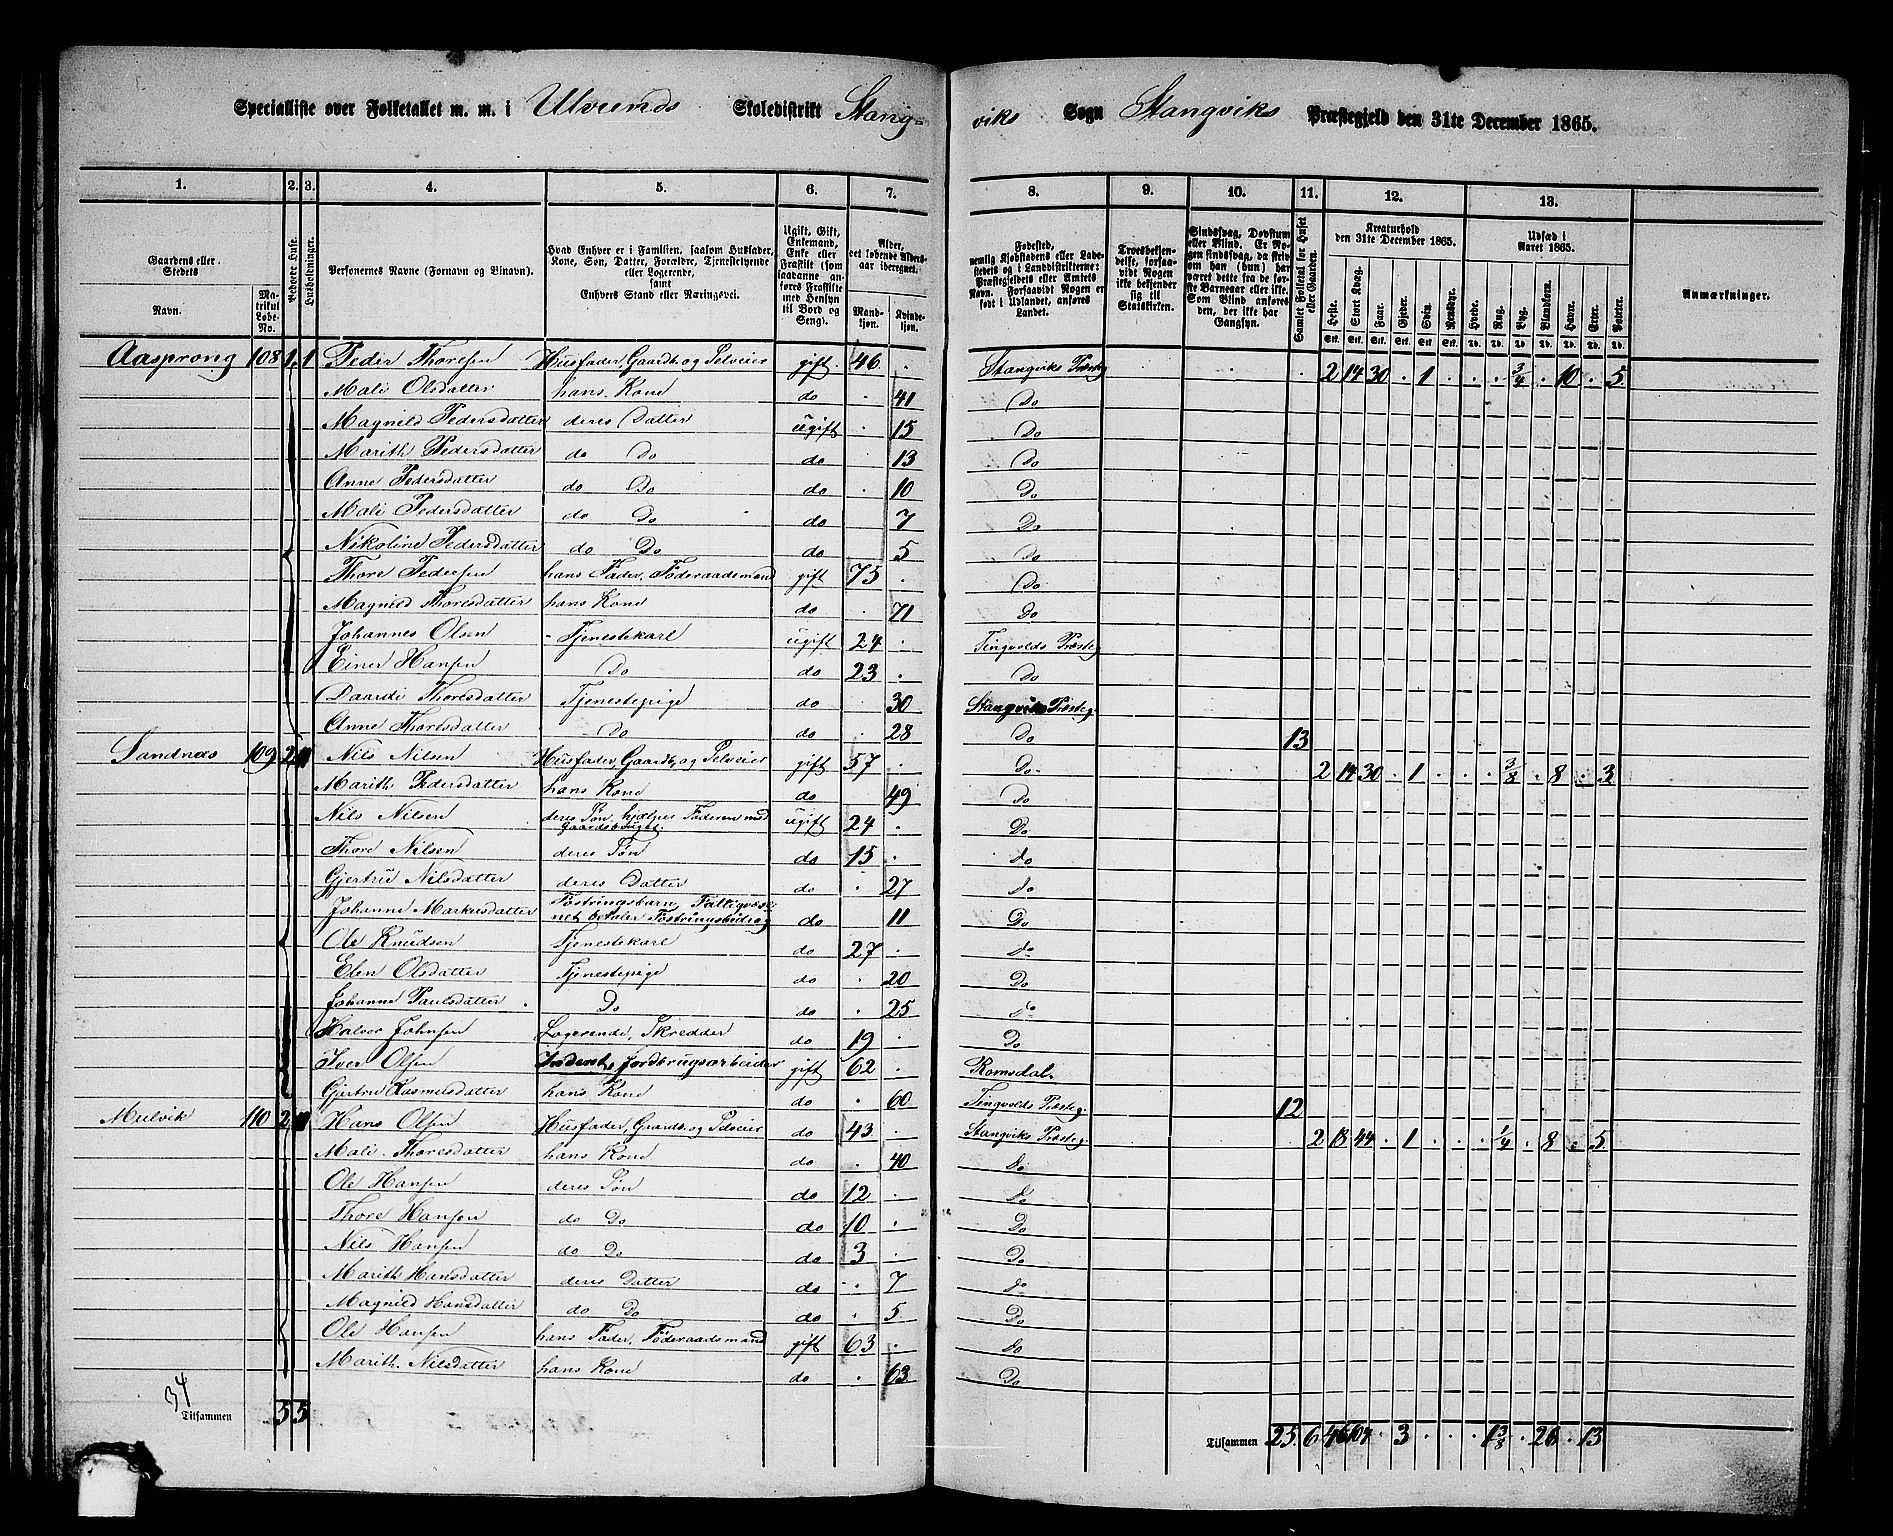 Specialliste over Folketallet m. m. i Ulvunds Skoledistrikt Stang-
viks Sogn Stangviks Præstegjeld den 31te December 1865.
1. 2. 3. 4. 5. 6. 7. 8. 9. 10. 11. 12. 13.
Gaardens eller Stedets
Navn.
Matrikul Løbe-No.
Beboede Huse.
Husholdninger.
Personernes Navne (Fornavn og Binavn).
Hvad Enhver er i Familien, saasom Husfader, Kone, Søn, Datter, Forældre, Tjenestetyende eller Logerende, samt Enhvers Stand eller Næringsvei.
Ugift, Gift, Enkemand, Enke eller Fraskilt (som saadanne anføres Fraskilte med Hensyn til Bord og Seng).
Alder, det løbende Aldersaar iberegnet.
Mandkjøn. Kvindekjøn.
Fødested, nemlig Kjøbstadens eller Ladestedets og i Landdistrikterne: Præstegjeldets eller Amtets Navn. Forsaavidt Nogen er født i Udlandet, anføres Landet.
Troesbekjendelse, forsaavidt Nogen ikke bekjender sig til Statskirken.
Sindssvag, Døvstum eller Blind. Er Nogen sindssvag, da skrives om han (hun) har været dette fra de første Barneaar eller ikke. Som Blind anføres den, der ikke har Gangsyn.
Samlet Folketal for Huset eller Gaarden.
Kreaturhold den 31te December 1865.
Heste. Stort Kvæg. Faar. Gjeder. Svin. Rensdyr.
Udsæd i Aaret 1865.
Hvede. Rug. Byg. Blandkorn. Havre. Erter. Poteter.
Anmærkninger.
Aasprong 108 1 1 Peder Thoresen Husfader, Gaardb. og Selveier gift 46 . Stangviks Præsteg 2 14 30 . 1 . . . 3/4 . 10 . 5
Mali Olsdatter hans Kone do . 41 Do
Magnild Pedersdatter deres Datter ugift . 15 Do
Marith Pedersdatter do Do do . 13 Do
Anne Pedersdatter do Do do . 10 Do
Mali Pedersdatter do Do do . 7 Do
Nikoline Pedersdatter do Do do . 5 Do
Thore Pedersen hans Fader, Föderaadsmand gift 75 . Do
Magnild Thoresdatter hans Kone do . 71 Do
Johannes Olsen Tjenestekarl ugift 24 . Tingvolds Præsteg
Einer Hansen Do do 23 . Do
Daarde Thoresdatter Tjenestepige do . 30 Stangviks Præsteg.
Anne Thoresdatter Do do . 28 Do 13
Sandnæs 109 2 Nils Nilsen Husfader, Gaardb, og Selveier gift 57 . Do 2 14 30 . 1 . . . 3/8 . 8 . 3
Marith Pedersdatter hans Kone do . 49 Do
Nils Nilsen deres Søn, hjælper Faderen med Gaardsbruget. ugift 24 . Do
Thore Nilsen deres Søn do 15 . do
Gjertru Nilsdatter deres Datter do . 27 do
Johanne Markusdatter Fostringsbarn, Fattigvæsenet betaler Fostringsbidrag do . 11 Do
Ole Knudsen Tjenestekarl do 27 . do
Elen Olsdatter Tjenestepige do . 20 Do
Johanne Paulsdatter Do do . 25 do
Halvor Johnsen Logerende, Skredder do 19 . Do
Iver Olsen Inderst, Jordbrugsarbeider gift 62 . Romsdal.
Gjertru Rasmusdatter hans Kone do . 60 Tingvolds Præsteg. 12
Mulvik 110 2 Hans Olsen Husfader, Gaardb. og Selveier do 43 . Stangviks Præsteg 2 18 44 . 1 . . . 1/4 . 8 . 5
Mali Thoresdatter hans Kone do . 40 do
Ole Hansen deres Søn do 12 . do
Thore Hansen do Do do 10 . Do
Nils Hansen do Do do 3 . Do
Marith Hansdatter deres Datter do . 7 do
Magnild Hansdatter do Do do . 5 Do
Ole Hansen hans Fader, Föderaadsmand gift 63 . do
Marith Nilsdatter hans Kone do . 63 Do
34
Tilsammen 5 5
Tilsammen 25 6 46 104 . 3 . . . 1 3/8 . 26 . 13